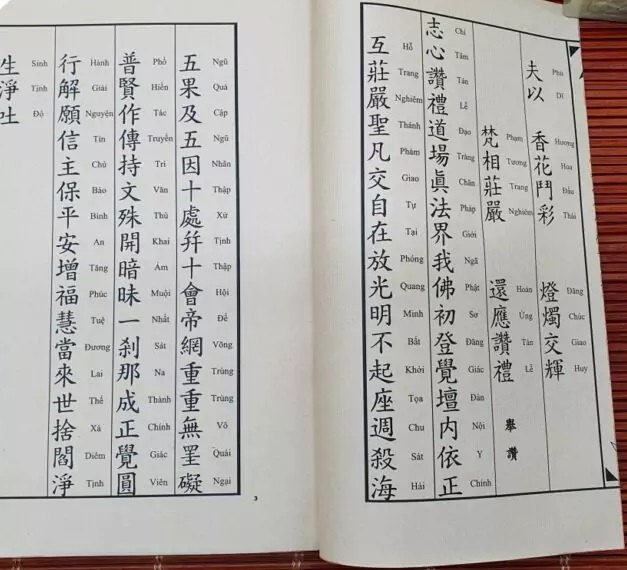 夫以 香花鬥彩 燈燭交輝
Phù Dĩ Hương Hoa Đấu Thái Đăng Chúc Giao Huy
梵相莊嚴 還應讚禮 舉讚
Phạm Tương Trang Nghiêm Hoàn Ứng Tán Lễ
志心讚禮道場眞法界我佛初登覺壇内依正
Chí Tâm Tán Lễ Đạo Tràng Chân Pháp Giới Ngã Phật Sơ Đăng Giác Đàn Nội Y Chính
互莊嚴聖凡交自在放光明不起座週殺海
Hỗ Trang Nghiêm Thánh Phàm Giao Tự Tại Phóng Quang Minh Bất Khởi Tọa Chu Sát Hải
五果及五因十處幷十會帝網重重無罣礙
Ngũ Quả Cập Ngũ Nhân Thập Xứ Tịnh Thập Hội Đế Võng Trùng Trùng Vô Quái Ngại
普賢作傳持文殊開暗昧一刹那成正覺圓
Phổ Hiền Tác Truyền Trì Văn Thù Khai Ám Muội Nhất Sát Na Thành Chính Giác Viên
行解願信主保平安增福慧當來世捨閻淨
Hành Giải Nguyện Tín Chủ Bảo Bình An Tăng Phúc Tuệ Đương Lai Thế Xả Diêm Tịnh
生淨吐
Sinh Tịnh Độ
3